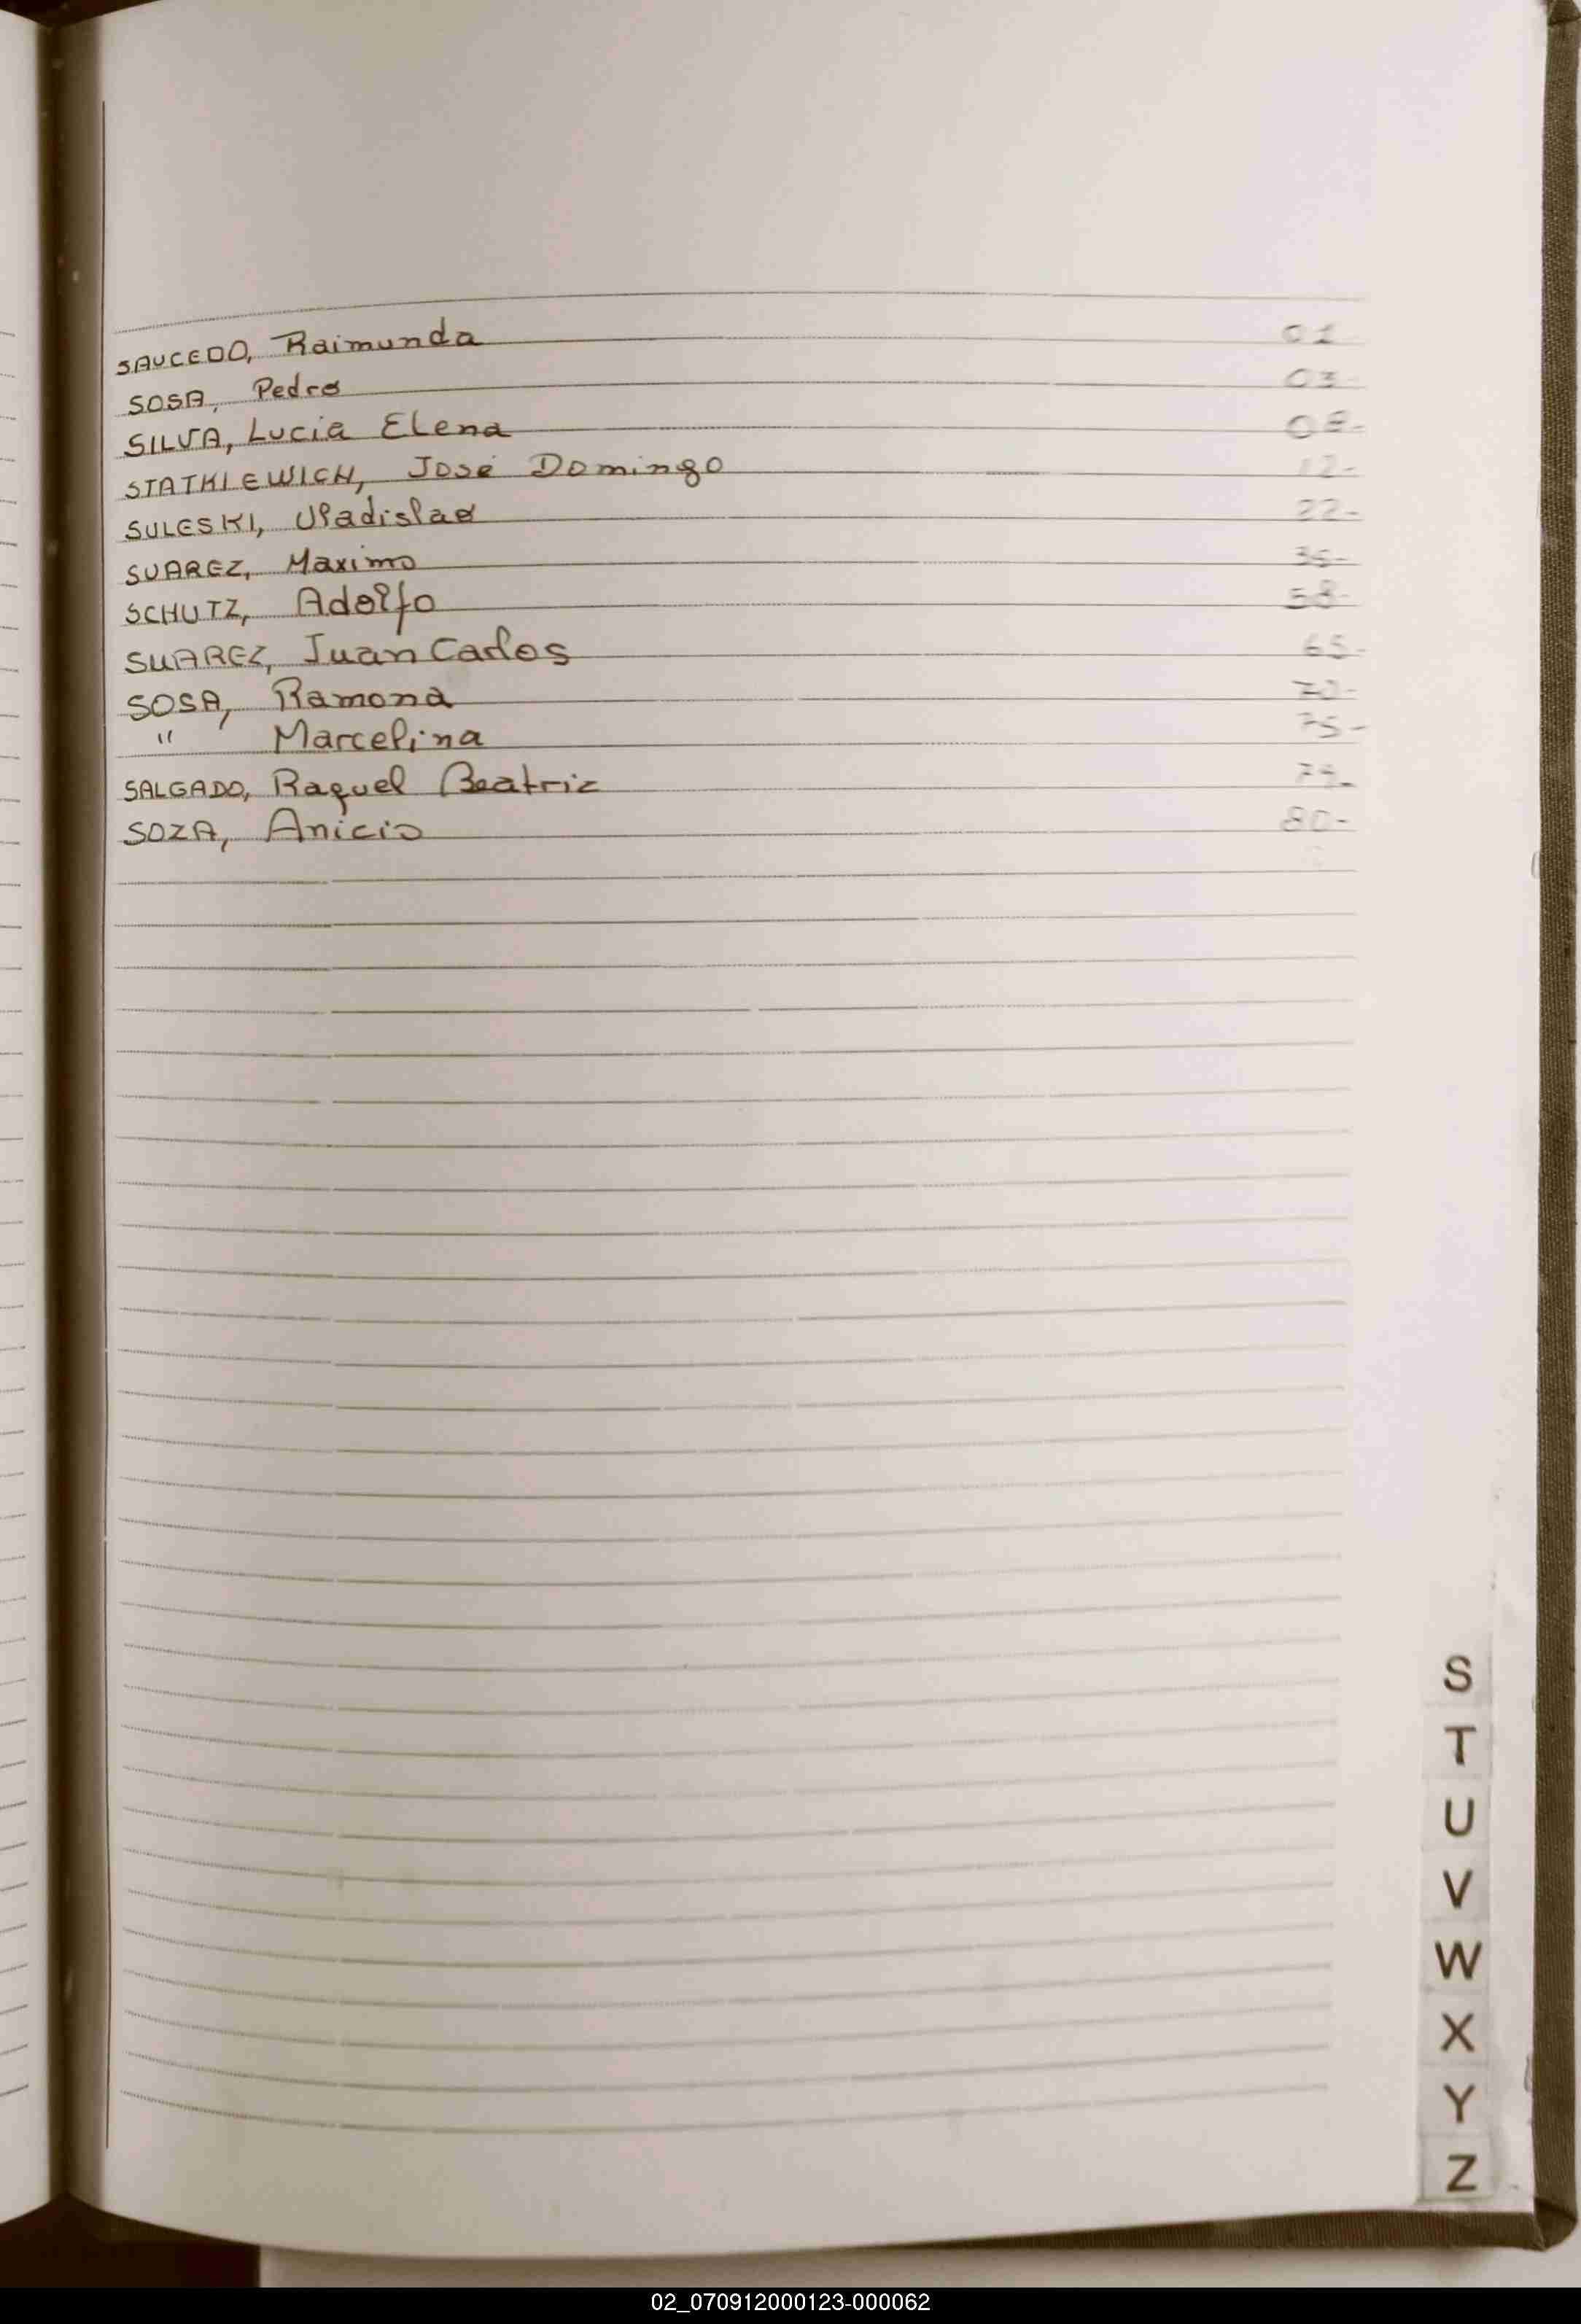 SAUCEDO, Raimunda 01
SOSA, Pedro 03
SILVA, Lucia Elena 08-
STATKIEWICH, José Domingo 12-
SULESKI, Uladislao 22-
SUAREZ, Maximo 35-
SCHUTZ, Adolfo 58-
SUAREZ, Juan Carlos 65-
SOSA, Ramona 70-
" Marcelina 75-
SALGADO, Raquel Beatriz
SOZA, Anicio 80-
S
T
U
V
W
X
Y
Z
02_070912000123-000062